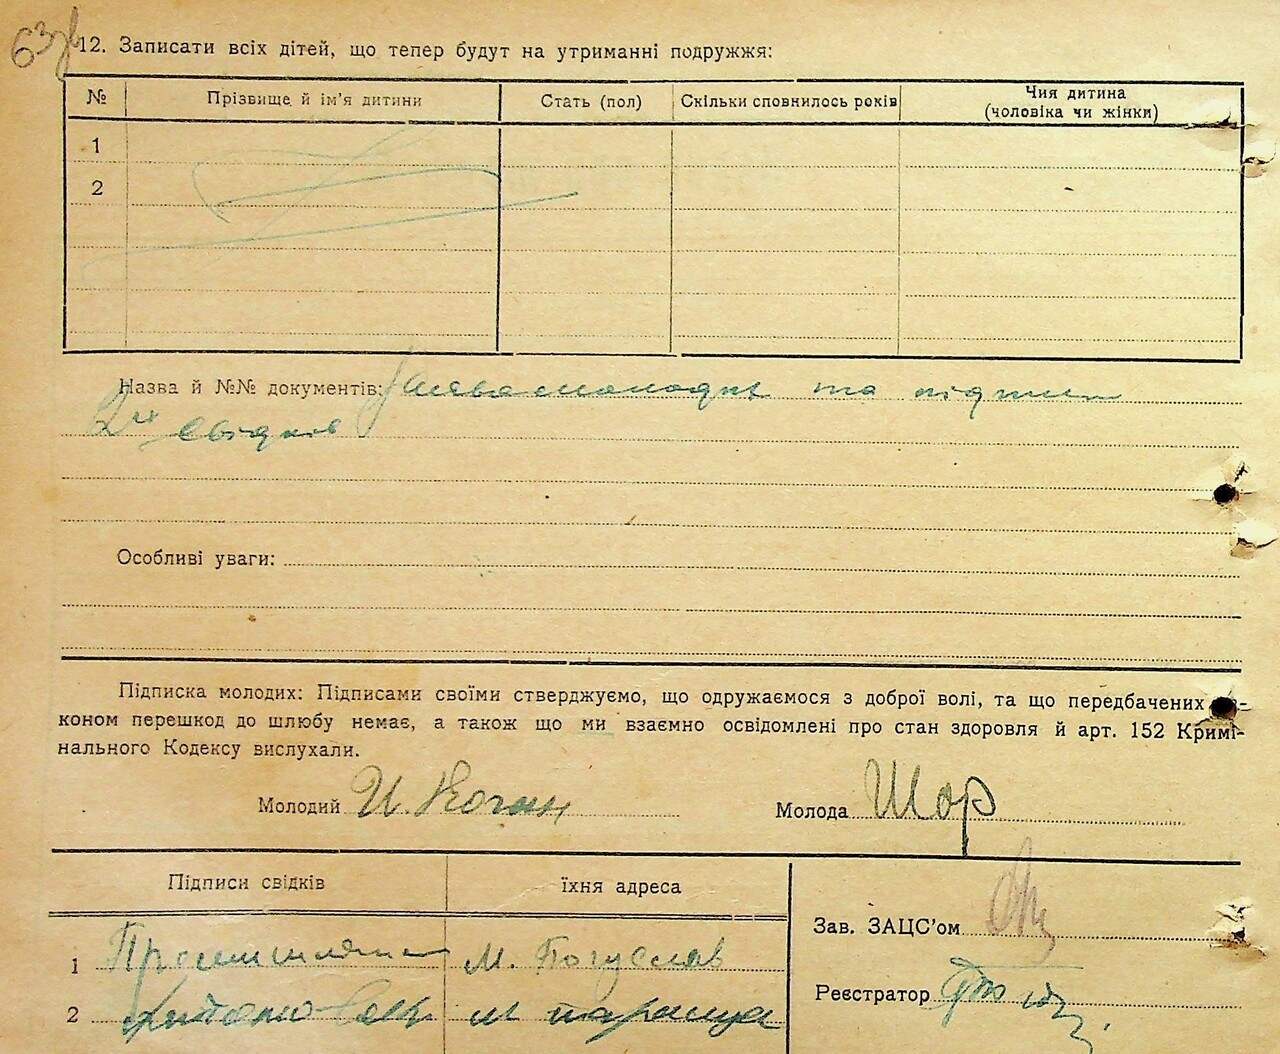 63зв
12. Записати всіх дітей, що тепер будут на утриманні подружжя:
№ Прізвище й ім'я дитини Стать (пол) Скільки сповнилось років Чия дитина
(чоловіка чи жінки)
1
2
Назва й №№ документів: та підписи
2х свідків
Особливі уваги:
Підписка молодих: Підписами своїми стверджуємо, що одружаємося з доброї волі, та що передбачених
коном перешкод до шлюбу немає, а також що ми взаємно освідомлені про стан здоровля й арт. 152 Кримі-
нального Кодексу вислухали.
Молодий И. Коган Молода Шор
Підписи свідків їхня адреса
Зав. ЗАЦС'ом
1 М. Богуслав
Реєстратор
2 м Тараща